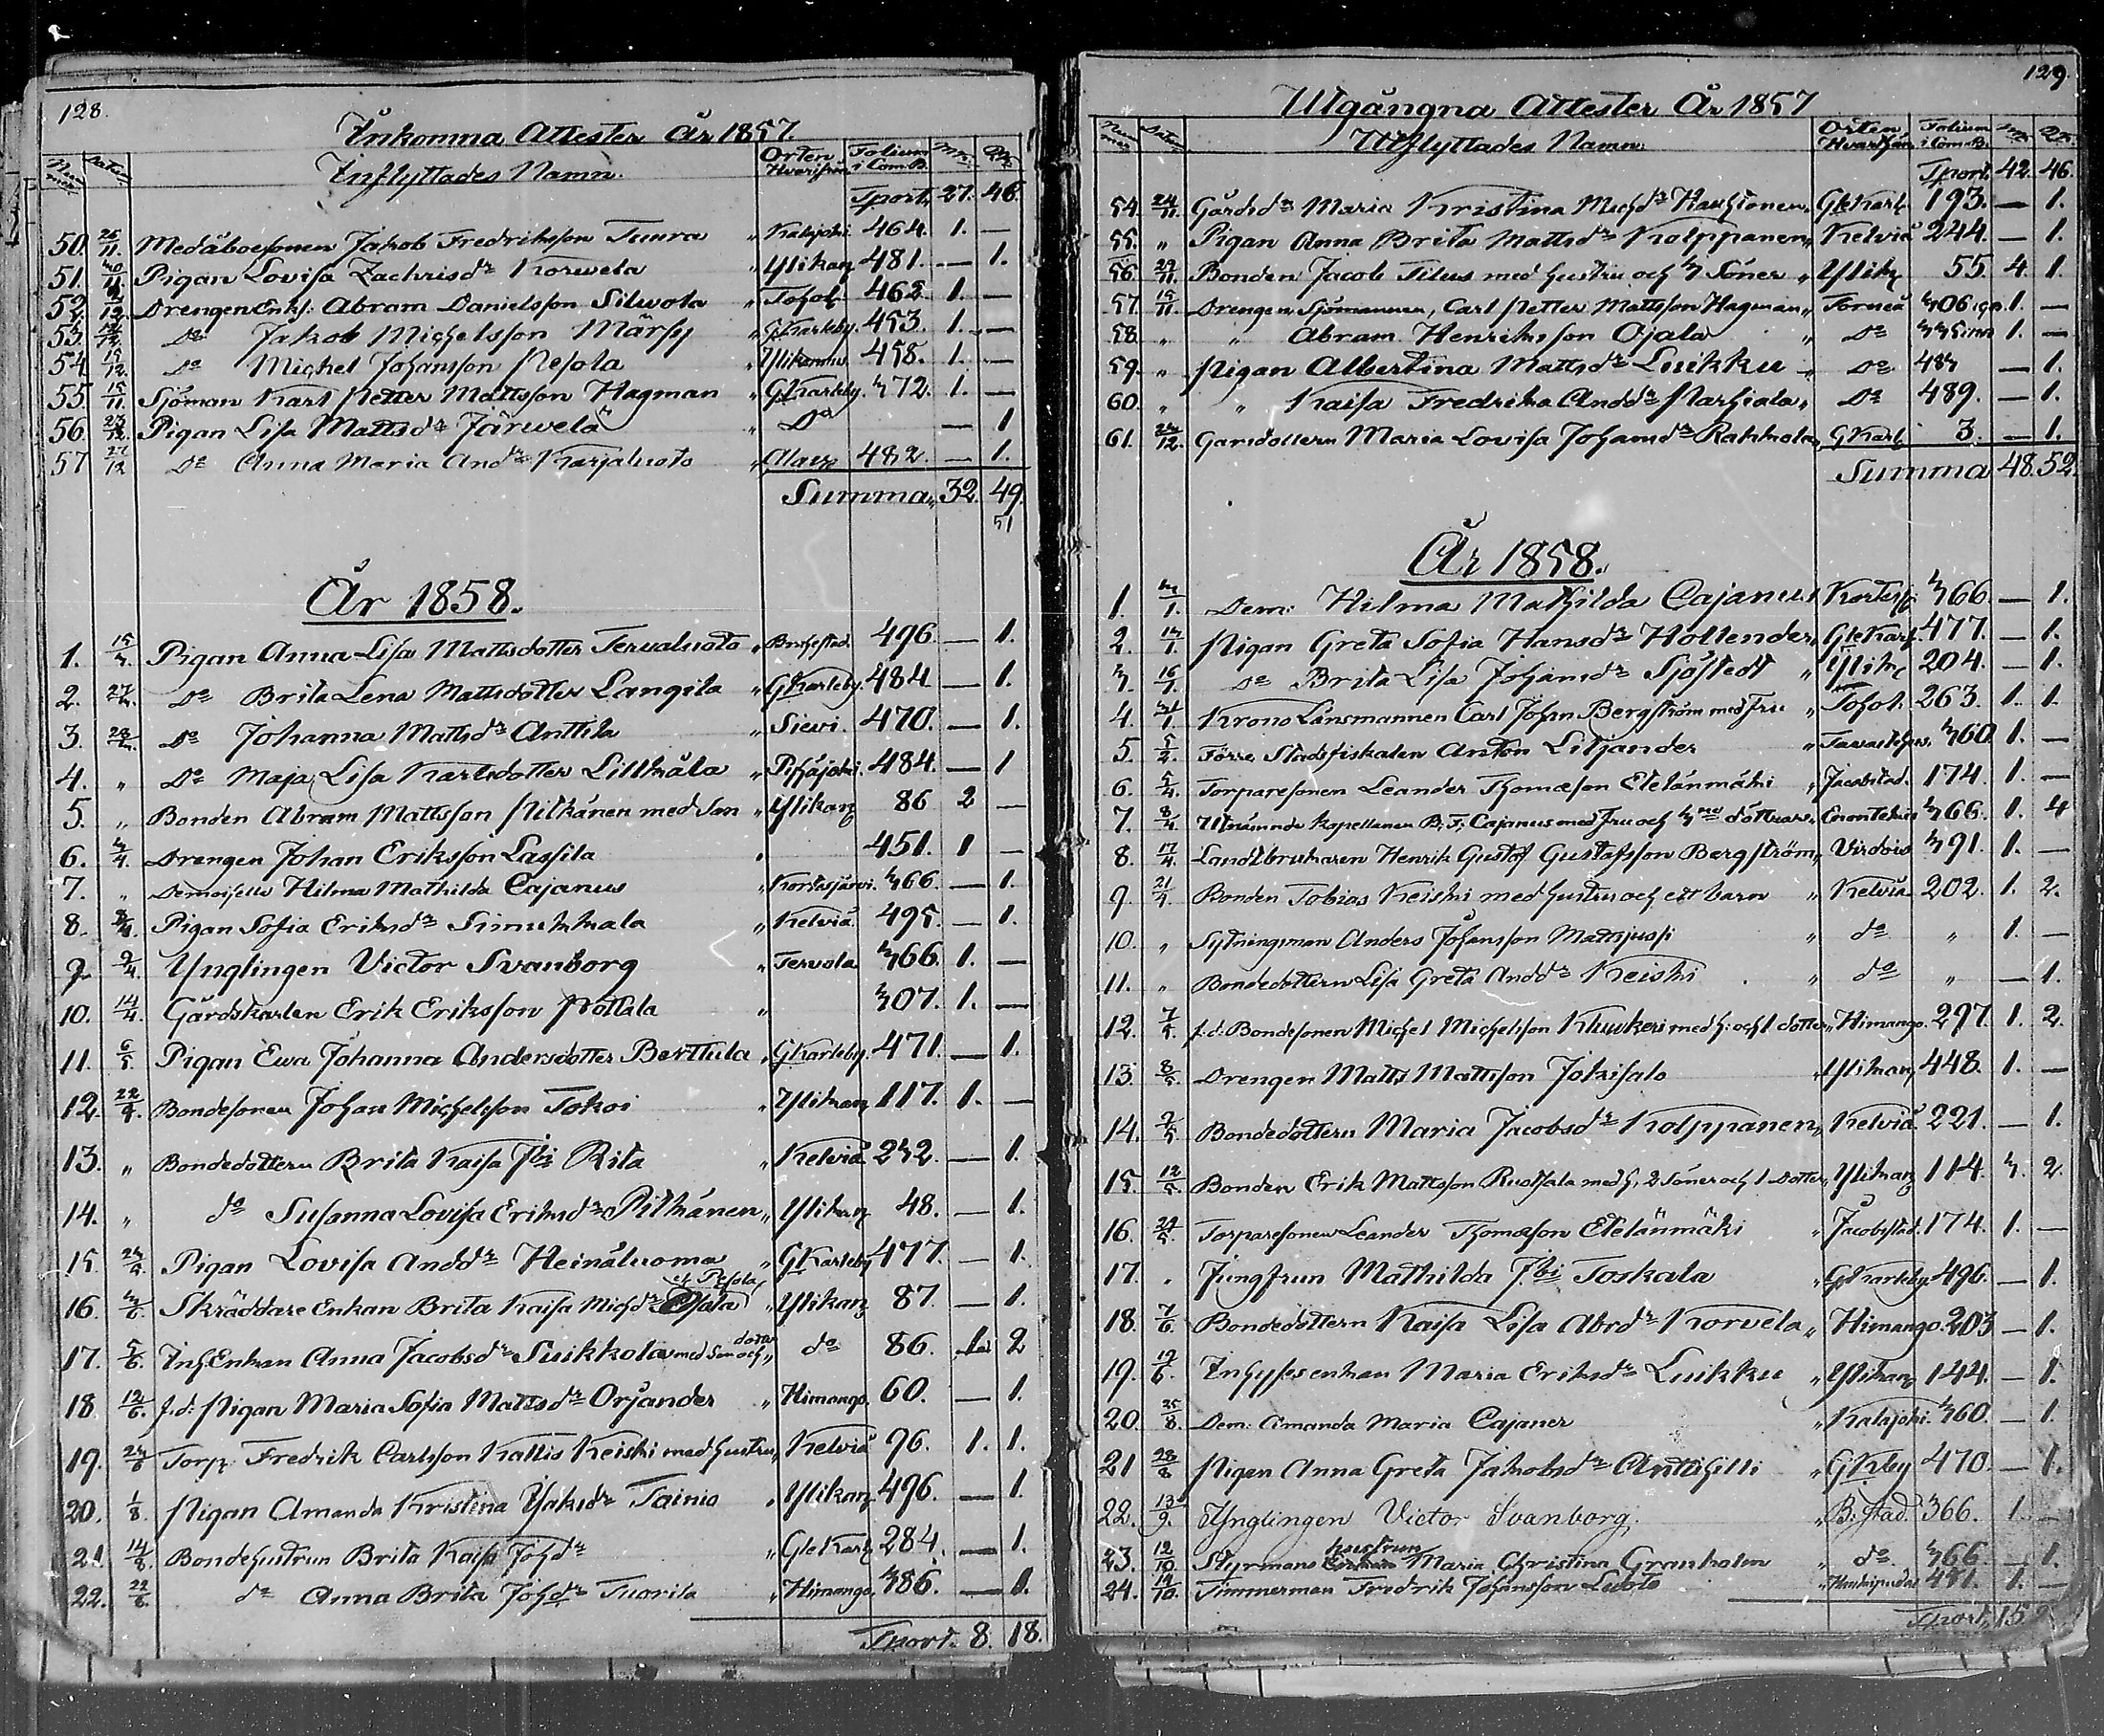 128.
Inkomna Attester år 1857
Nummer Datum Inflyttades Namn. Orten Hvarifrån Folium i ComB. Mk. Qk.
Tport. 27. 46.
50. 26/11. Medåboesonen Jakob Fredriksson Tuura " Kalajoki 464. 1. —
51. 30/11 Pigan Lovisa Zachrisdr Korwela " Ylikan 481. — 1.
52. /12. Drengen Enkl. Abram Danielsson Silwola " Tohol. 462. 1. —
53. /12. Do Jakob Michelsson Märsy " GKarleby. 453. 1. —
54 15/12. Do Michel Johansson Pesola " Ylikannus. 458. 1. —
55. 15/11. Sjöman Karl Petter Mattsson Hagman " GKarleby. 372. 1. —
56. 23/12. Pigan Lisa Mattsdr Järwelä " Do — 1
57 27/12 Do Anna Maria Anddr Karjaluoto " Alavo 482. — 1.
Summa, 32. 49.
51
År 1858.
1. 15/3. Pigan Anna Lisa Mattsdotter Terwaluoto " Brahestad. 496. — 1.
2. 27/3. Do Brita Lena Mattsdotter Langila " GKarleby. 484 — 1.
3. 28/3. Do Johanna Mattsdr Anttila " Siewi. 470. — 1.
4. " Do Maja Lisa Karlsdotter Littkåla " Pihäjoki. 484. — 1
5. " Bonden Abram Mattsson Pitkänen med Son " Ylikan 86 2 —
6. 3/4. Drengen Johan Eriksson Lassila " 451. 1 —
7. " Demoiselle Hilma Mathilda Cajanus " Kortesjärvi. 366. — 1.
8. 8/4. Pigan Sofia Eriksdr Simukkala " Kelviå. 495. — 1.
9. 9/4. Ynglingen Victor Svanborg " Tervola 366. 1. —
10. 14/4. Gårdskarlen Erik Eriksson Pottala " 307. 1. —
11. 6/5. Pigan Ewa Johanna Andersdotter Berttula " GKarleby. 471. — 1.
12. 22/4. Bondesonen Johan Michelsson Tokoi " Ylikan 117. 1. —
13. " Bondedottern Brita Kaisa Jbi Rita " Kelviå 232. — 1.
14. " do Susanna Lovisa Eriksdr Pitkänen " Ylikan 48. — 1.
15. Pigan Lovisa Anddr Heinäluoma " GKarleby 477. — 1.
16. 3/6. Skräddare Enkan Brita Kaisa Michdr Pesola " Ylikan 87. — 1.
17. 5/6. Inh. Enkan Anna Jacobsdr Suikkola med Son och dotter " do 86. 1. 2
18 12/6. f.d. Pigan Maria Sofia Mattsdr Orjander " Himango. 60. — 1.
19. 24/6 Torp. Fredrik Carlsson Kallis Keiski med hustru " Kelviå 96. 1. 1.
20. 1/8. Pigan Amanda Kristina Isaksdr Tainio " Ylikan 496. — 1.
21. 14/8. Bondehustrun Brita Kaisa Johdr " GleKarl 284. — 1.
22. 22/8. do Anna Brita Johdr Tuorila " Himango. 386. — 1.
Tport. 8. 18.
129.
Utgångna Attester År 1857
Nummer Datum Utflyttades Namn. Orten Hvartsän Folium i ComB. Mk. Qk.
Tport. 42. 46.
54. 24/11. Gårdsdr Maria Kristina Michdr Hauhtonen " GleKarl. 193. — 1.
55. " Pigan Anna Brita Mattsdr Kolppanen " Kelviå 244. — 1.
56. 29/11. Bonden Jacob Tilus med hustru och 3 Söner " Ylik 55. 4. 1.
57. 15/11. Drengen, Sjömannen, Carl Petter Mattsson Hagman " Torneå 306. 1. —
58. " " Abram Henriksson Ojala " Do 1. —
59. " Pigan Albertina Mattsdr Luikku " Do 483 — 1.
60. " " Kaisa Fredrika Anddr Parhiala " Do 489. — 1.
61. 24/12. Garsdottern Maria Lovisa Johansdr Rahkola " GKarl 3. — 1.
Summa 48. 52.
År 1858.
1. 3/1. Dem: Hilma Mathilda Cajanus Kortesj. 366. — 1.
2. 13/1. Pigan Greta Sofia Hansdr Hollender " GleKarl. 477. — 1.
3. 16/1. Do Brita Lisa Johansdr Sjöstedt " Ylik 204. — 1.
4. 31/1. Krono Länsmannen Carl Johan Bergström med fru " Tohol. 263. 1. 1.
5. 5/2. Förre Stadsfiskalen Anton Liljander " Tavastehus. 360 1. —
6. 5/4. Torparesonen Leander Thomæson Etelänmäki " Jacobstad. 174. 1. —
7. 8/4 Utnämnde Kapellanen B. F. Cajanus med fru och 3ne döttrar " Enontekis 366. 1. 4
8. 17/4. Landtbrukaren Henrik Gustaf Gustafsson Bergström " Virdois 391. 1. —
9. 21/4 Bonden Tobias Keiski med hustru och ett barn " Kelviå 202. 1. 2.
10. " Sytningsman Anders Johansson Mattsjussi " do " 1. —
11. " Bondedottern Lisa Greta Anddr Keiski " do " — 1.
12. 7/5. f.d. Bondesonen Michel Michelsson Kluukeri med h: och 1 dotter " Himango. 297. 1. 2.
13. 8/5. Drengen Matts Mattsson Jokisalo " Ylikan 448. 1. —
14. 9/5. Bondedottern Maria Jacobsdr Kolppanen " Kelviå 221. — 1.
15. 12/5. Bonden Erik Mattsson Ruotsala med h, 2 Söner och 1 dotter " Ylikan 114. 3. 2
16. 24/5. Torparesonen Leander Thomæson Etelänmäki " Jacobstad. 174. 1. —
17. " Jungfrun Mathilda Jbi Toskala " GKarleby. 496. — 1.
18. 7/6. Bondedottern Kaisa Lisa Abrdr Korvela " Himango. 203 — 1.
19. 19/6. Inhyses enkan Maria Eriksdr Luikku " Ylikan 144. — 1.
20. 25/8. Dem: Amanda Maria Cajaner " Kalajoki. 360. — 1.
21 28/8 Pigan Anna Greta Jakobsdr Anttihilli " GKleby 470. — 1.
22. 13/9. Ynglingen Victor Svanborg. " B:stad. 366. 1. —
23. 12/10. Styrmans hustrun Maria Christina Granholm " do 366 — 1.
24. 14/10. Timmerman Fredrik Johansson Luoto " 481. 1. —
Tport. 15